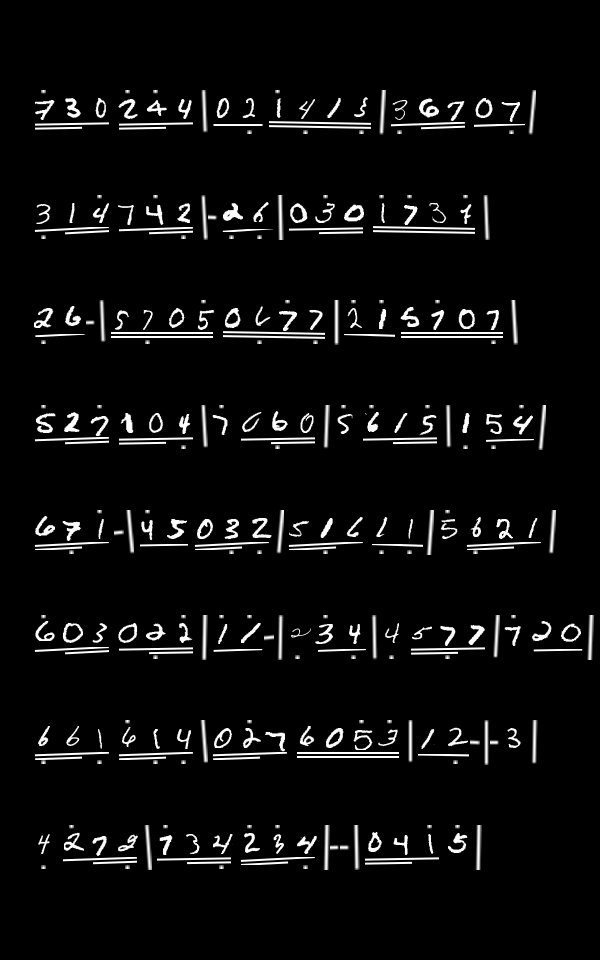 730244|021413|36707
314742|-26|0301737
26-|57050677|215707
527104|7060|5615|154
671-|45032|51611|5621
603022|11-|234|4577|720
661614|0276053|12-|-3
4272|734234|--|0415